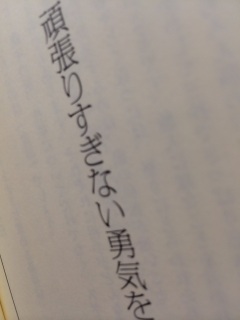 頑張りすぎない勇気を